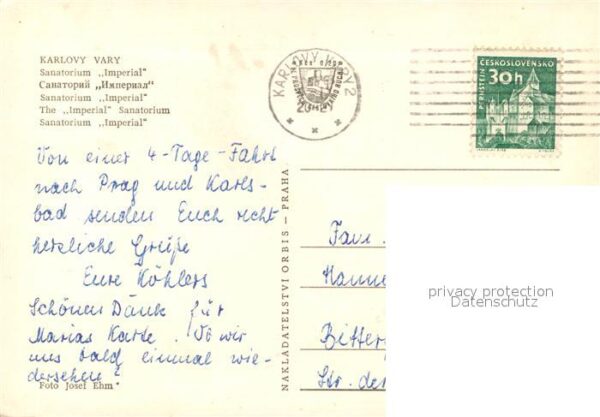 KARLOVY VARY
Sanatorium „Imperial"
Санаторий „Империал"
Sanatorium „Imperial"
The „Imperial" Sanatorium
Sanatorium „Imperial"
Von einer 4-Tage-Fahrt
nach Prag und Karls-
bad senden Euch recht
herzliche Grüße
Eure Köhlers
Schönen Dank für
Marias Karte. Ob wir
uns bald einmal wie-
dersehen?
Foto Josef Ehm
NAKLADATELSTVÍ ORBIS – PRAHA
KARLOVY VARY 2
ČESKOSLOVENSKO
30h
PERNŠTEJN
Fam.
Hanne
Bitterf
Str. der
privacy protection
Datenschutz